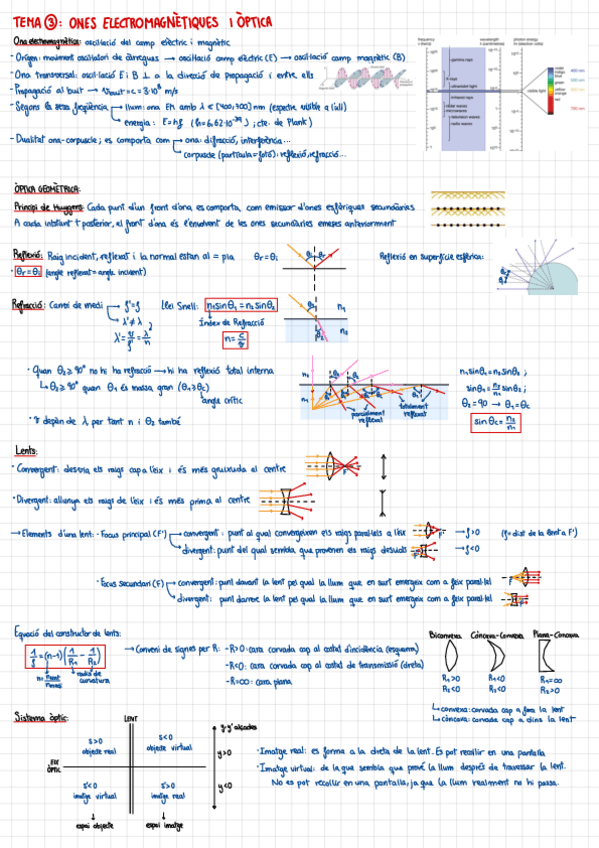 TEMA ③: ONES ELECTROMAGNÈTIQUES I ÒPTICA
Ona electromagnètica: oscil·lació del camp elèctric i magnètic
- Origen: moviment oscil·latori de càrregues → oscil·lació camp elèctric (E) → oscil·lació camp magnètic (B)
- Ona transversal: oscil·lació E i B ⊥ a la direcció de propagació i entre ells
- Propagació al buit → Vbuit = c = 3·10⁸ m/s
- Segons la seva freqüència
llum: ona EM amb λ ∈ [400, 700] nm (espectre visible a l'ull)
energia: E=hf (h=6,62·10⁻³⁴) ; cte. de Plank)
- Dualitat ona-corpuscle; es comporta com
ona: difracció, interferència...
corpuscle (partícula=fotó): reflexió, refracció...
gamma rays
X-rays
ultraviolet light
visible light
infrared rays
radio waves
ÒPTICA GEOMÈTRICA:
Principi de Huygens: Cada punt d'un front d'ona es comporta, com emissor d'ones esfèriques secundàries
A cada instant t posterior, el front d'ona és l'envolvent de les ones secundàries emeses anteriorment
Reflexió: Raig incident, reflexat i la normal estan al = pla
θr=θi
Reflexió en superfície esfèrica:
· θr=θi (angle reflexat = angle incident)
Refracció: Canvi de medi
f'=f
λ'≠λ
λ'=v/f=λ/n
Llei Snell: n₁sinθ₁ = n₂sinθ₂
Índex de Refracció
n=c/v
n₁
n₂
· Quan θ₂≥90° no hi ha refracció → hi ha reflexió total interna
↳ θ₂≥90° quan θ₁ és massa gran (θ₁≥θc)
angle crític
· v depèn de λ per tant n i θ₂ també
n₂
n₁
parcialment reflexat
totalment reflexat
n₁sinθ₁=n₂sinθ₂ ;
sinθ₁=n₂/n₁ sinθ₂ ;
θ₂=90 → θ₁=θc
sinθc=n₂/n₁
Lents:
· Convergent: desvia els raigs cap a l'eix i és més gruixuda al centre
· Divergent: allunya els raigs de l'eix i és més prima al centre
→ Elements d'una lent: - Focus principal (F')
convergent: punt al qual convergeixen els raigs paral·lels a l'eix
→ f>0
(f=dist de la lent a F')
divergent: punt del qual sembla que provenen els raigs desviats
→ f<0
· Focus secundari (F)
convergent: punt davant la lent pel qual la llum que en surt emergeix com a feix paral·lel
divergent: punt darrere la lent pel qual la llum que en surt emergeix com a feix paral·lel
Equació del constructor de lents:
1/f=(n-1)(1/R₁ - 1/R₂)
radis de curvatura
→ Conveni de signes per R: - R>0: cara corvada cap al costat d'incidència (esquerra)
- R<0: cara corvada cap al costat de transmissió (dreta)
- R=∞: cara plana
Biconvexa
Còncava-Convexa
Plana-Còncava
R₁>0
R₂<0
R₁<0
R₂<0
R₁=∞
R₂>0
↳ convexa: corvada cap a fora la lent
↳ còncava: corvada cap a dins la lent
Sistema òptic:
LENT
EIX ÒPTIC
s>0
objecte real
s<0
objecte virtual
s'<0
imatge virtual
s'>0
imatge real
espai objecte
espai imatge
y-y' alçades
y>0
y<0
· Imatge real: es forma a la dreta de la lent. Es pot recollir en una pantalla
· Imatge virtual: de la que sembla que prové la llum després de travessar la lent.
No es pot recollir en una pantalla, ja que la llum realment no hi passa.